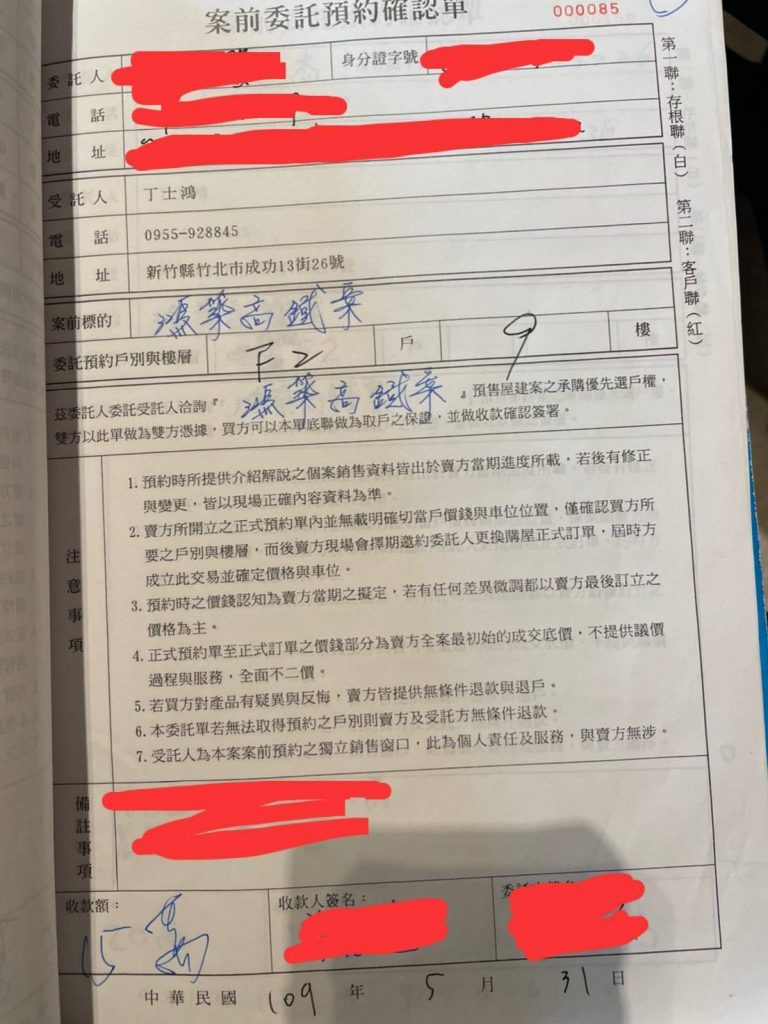 案前委託預約確認單
000085
委託人
身分證字號
電話
地址
受託人 丁士鴻
電話 0955-928845
地址 新竹縣竹北市成功13街26號
案前標的 鴻築高鐵案
委託預約戶別與樓層 F2 戶 9 樓
茲委託人委託受託人洽詢『鴻築高鐵案』預售屋建案之承購優先選戶權，
雙方以此單做為雙方憑據，買方可以本單底聯做為取戶之保證，並做收款確認簽署。
注意事項
1. 預約時所提供介紹解說之個案銷售資料皆出於賣方當期進度所載，若後有修正
與變更，皆以現場正確內容資料為準。
2. 賣方所開立之正式預約單內並無載明確切當戶價錢與車位位置，僅確認買方所
要之戶別與樓層，而後賣方現場會擇期邀約委託人更換購屋正式訂單，屆時方
成立此交易並確定價格與車位。
3. 預約時之價錢認知為賣方當期之擬定，若有任何差異微調都以賣方最後訂立之
價格為主。
4. 正式預約單至正式訂單之價錢部分為賣方全案最初始的成交底價，不提供議價
過程與服務，全面不二價。
5. 若買方對產品有疑異與反悔，賣方皆提供無條件退款與退戶。
6. 本委託單若無法取得預約之戶別則賣方及受託方無條件退款。
7. 受託人為本案案前預約之獨立銷售窗口，此為個人責任及服務，與賣方無涉。
備註事項
收款額： 15萬
收款人簽名：
中華民國 109 年 5 月 31 日
第一聯：存根聯（白）
第二聯：客戶聯（紅）